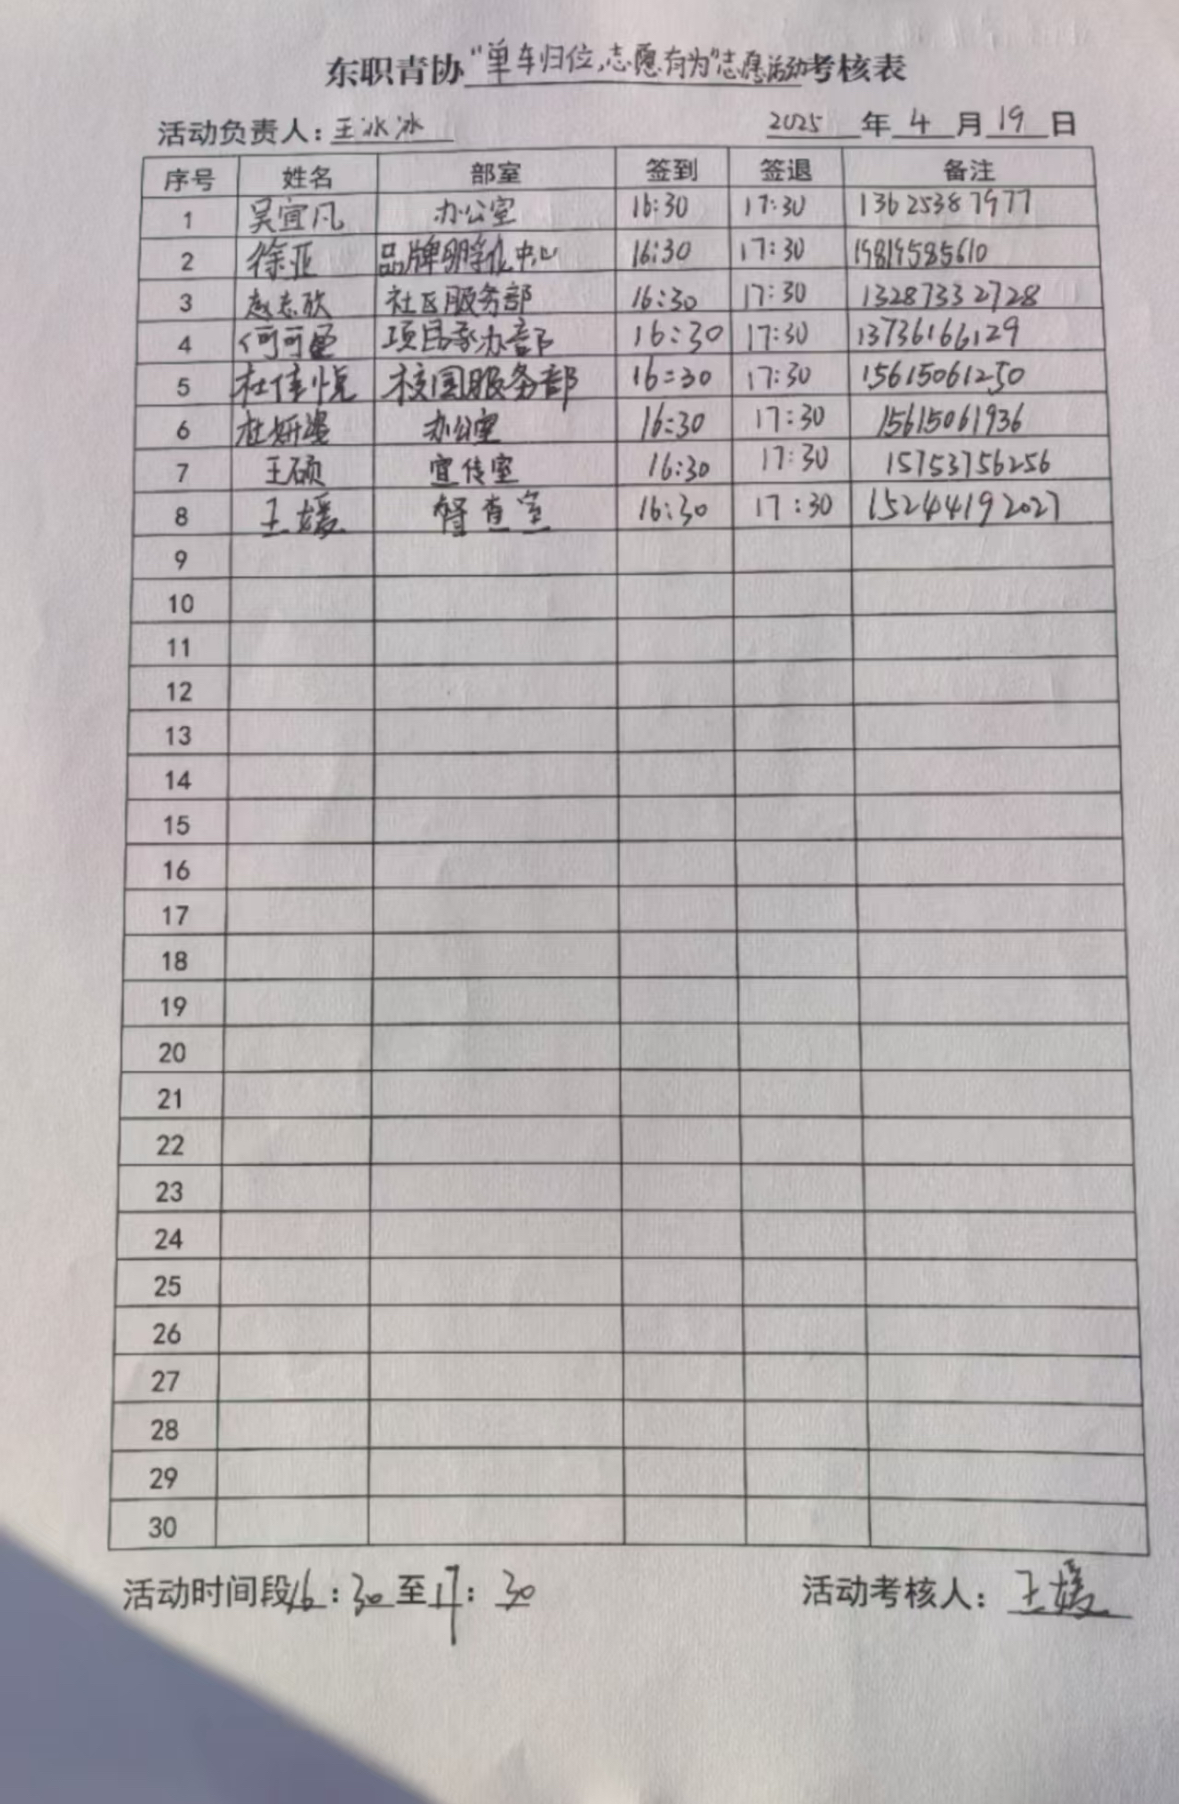 东职青协“单车归位,志愿有为”志愿活动考核表
活动负责人:王冰冰 2025年4月19日
序号 姓名 部室 签到 签退 备注
1 吴宜凡 办公室 16:30 17:30 13625387977
2 徐亚 品牌孵化中心 16:30 17:30 19819585610
3 赵志欣 社区服务部 16:30 17:30 13287332728
4 何可 项目承办部 16:30 17:30 13736166129
5 杜佳悦 校园服务部 16:30 17:30 15615061250
6 杜妍 办公室 16:30 17:30 15615061936
7 王硕 宣传室 16:30 17:30 15753756256
8 王媛 督查室 16:30 17:30 15244192027
9
10
11
12
13
14
15
16
17
18
19
20
21
22
23
24
25
26
27
28
29
30
活动时间段16:30至17:30 活动考核人:王媛